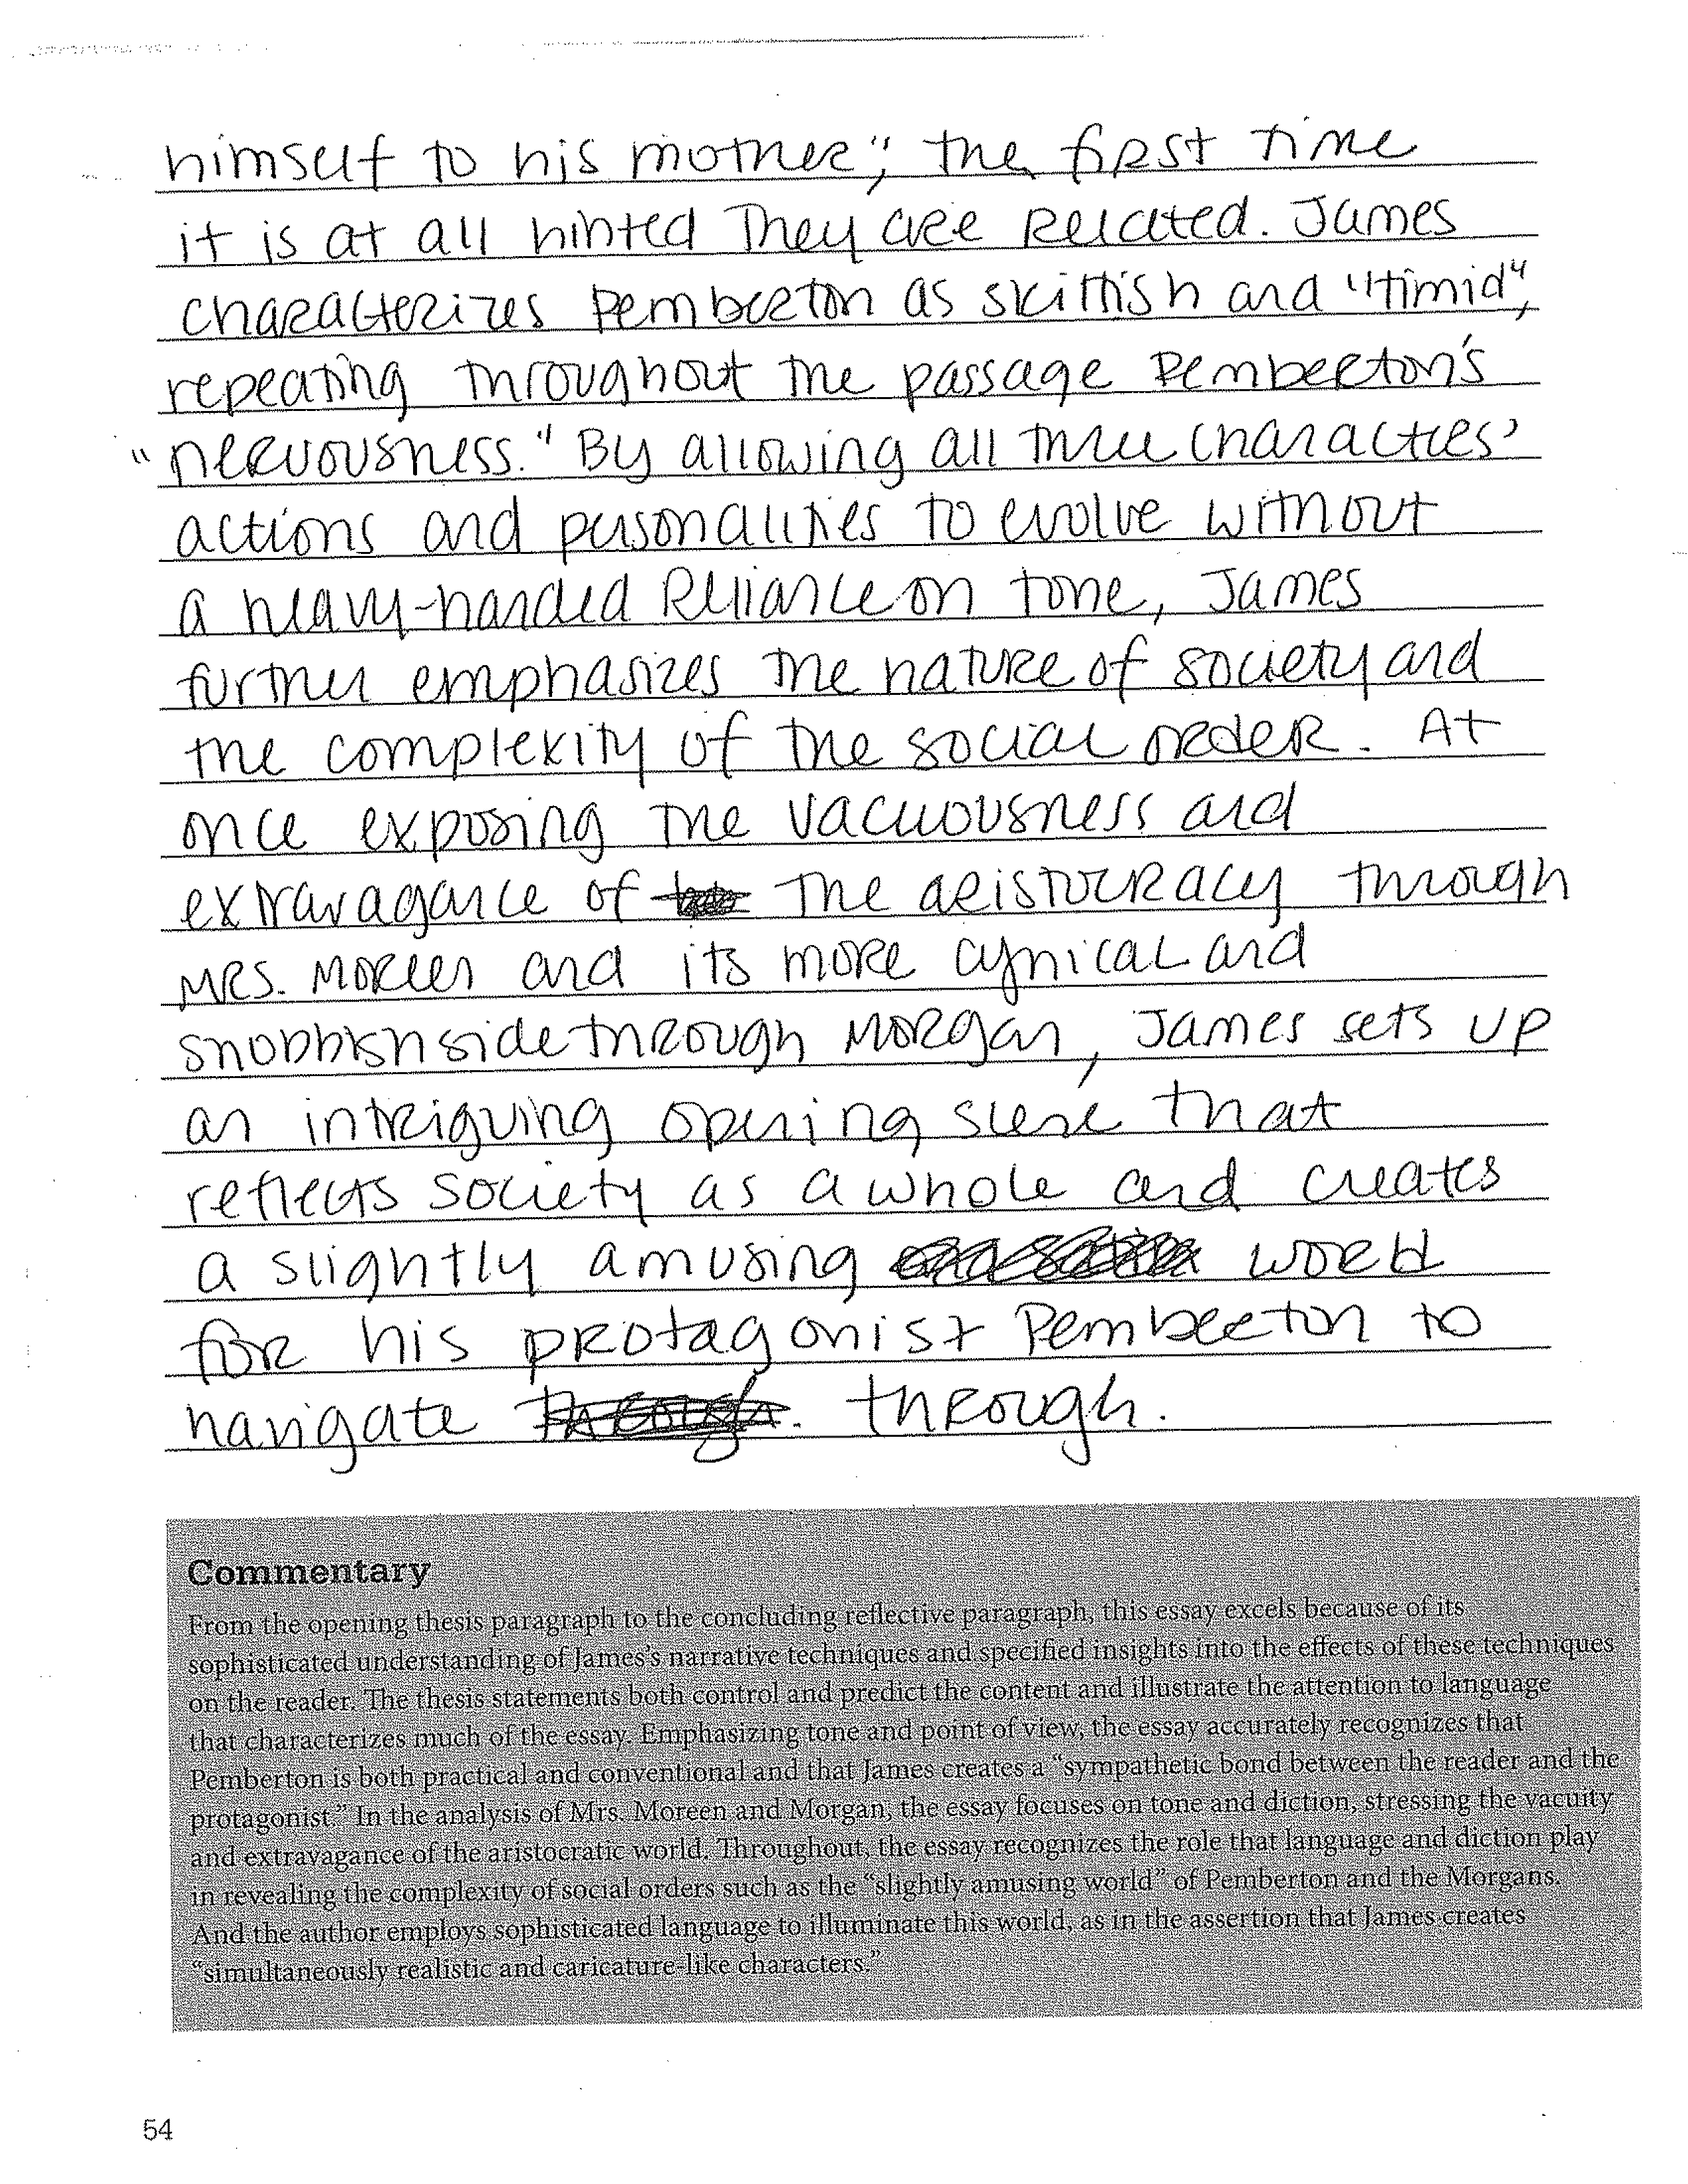 himself to his mother"; the first time
it is at all hinted they are related. James
characterizes Pemberton as skittish and "timid",
repeating throughout the passage Pemberton's
"nervousness." By allowing all three characters'
actions and personalities to evolve without
a heavy-handed reliance on tone, James
further emphasizes the nature of society and
the complexity of the social order. At
once exposing the vacuousness and
extravagance of the aristocracy through
Mrs. Moreen and its more cynical and
snobbish side through Morgan, James sets up
an intriguing opening scene that
reflects society as a whole and creates
a slightly amusing world
for his protagonist Pemberton to
navigate through. through.
Commentary
From the opening thesis paragraph to the concluding reflective paragraph, this essay excels because of its
sophisticated understanding of James's narrative techniques and specified insights into the effects of these techniques
on the reader. The thesis statements both control and predict the content and illustrate the attention to language
that characterizes much of the essay. Emphasizing tone and point of view, the essay accurately recognizes that
Pemberton is both practical and conventional and that James creates a "sympathetic bond between the reader and the
protagonist." In the analysis of Mrs. Moreen and Morgan, the essay focuses on tone and diction, stressing the vacuity
and extravagance of the aristocratic world. Throughout, the essay recognizes the role that language and diction play
in revealing the complexity of social orders such as the "slightly amusing world" of Pemberton and the Morgans.
And the author employs sophisticated language to illuminate this world, as in the assertion that James creates
"simultaneously realistic and caricature-like characters."
54